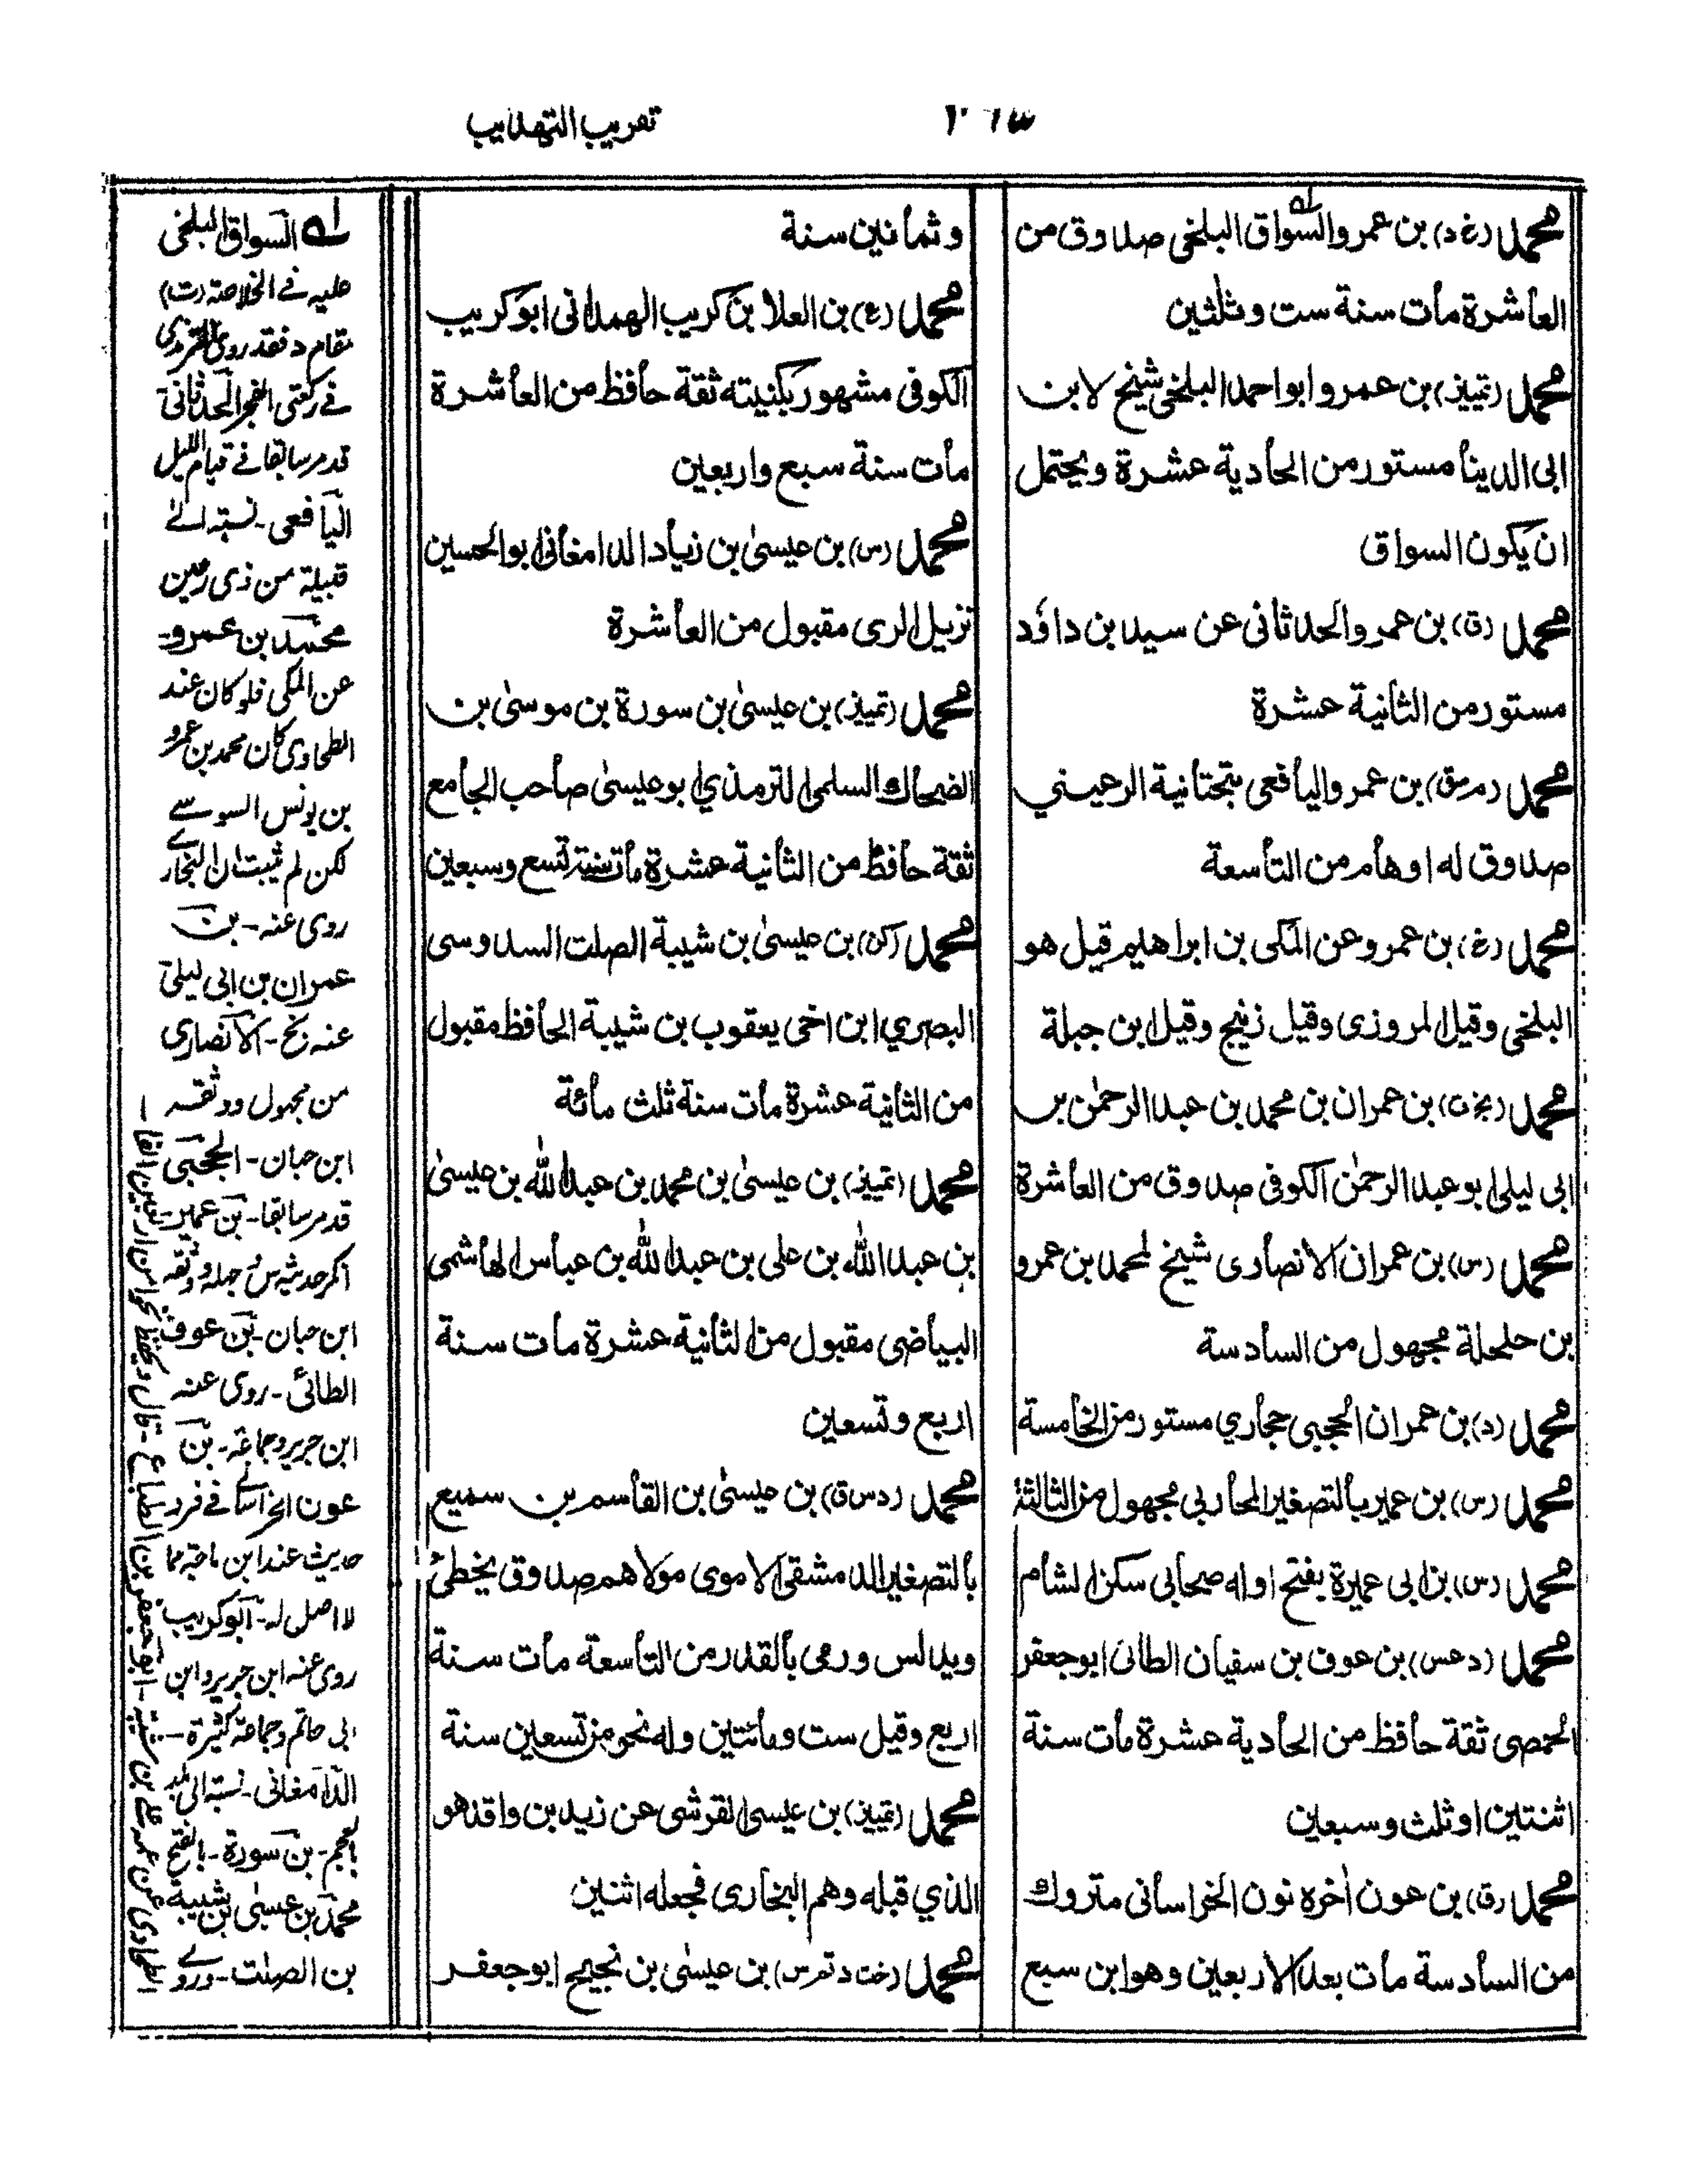 تقريب التهذيب
محمد (خ د) بن عمرو السواق البلخى صدوق من
العاشرة مات سنة ست وثلثين
محمد (تمييز) بن عمرو ابو احمد البلخى شيخ لابن
ابى الدنيا مستور من الحادية عشرة ويحتمل
ان يكون السواق
محمد (ق) بن عمرو الحدثانى عن سيد بن داود
مستور من الثانية عشرة
محمد (م س ق) بن عمرو اليافعى بتحتانية الرعيني
صدوق له اوهام من التاسعة
محمد (خ) بن عمرو عن المكى بن ابراهيم قيل هو
البلخى وقيل المروزى وقيل زنيج وقيل ابن جبلة
محمد (بخ ت) بن عمران بن محمد بن عبد الرحمن بن
ابى ليلى ابو عبد الرحمن الكوفى صدوق من العاشرة
محمد (س) بن عمران الانصارى شيخ لمحمد بن عمرو
بن حلحلة مجهول من السادسة
محمد (د) بن عمران الحجبى حجازي مستور من الخامسة
محمد (س) بن عمير بالتصغير المحاربى مجهول من الثالثة
محمد (س) بن ابى عميرة بفتح اوله صحابى سكن الشام
محمد (د عس) بن عوف بن سفيان الطائى ابو جعفر
الحمصى ثقة حافظ من الحادية عشرة مات سنة
اثنتين او ثلث وسبعين
محمد (ق) بن عون اخره نون الخراسانى متروك
من السادسة مات بعد الاربعين وهو ابن سبع
وثمانين سنة
محمد (ع) بن العلا بن كريب الهمدانى ابو كريب
الكوفى مشهور بكنيته ثقة حافظ من العاشرة
مات سنة سبع واربعين
محمد (س) بن عيسى بن زياد الدامغانى ابو الحسين
نزيل الرى مقبول من العاشرة
محمد (تمييز) بن عيسى بن سورة بن موسى بن
الضحاك السلمى الترمذي ابو عيسى صاحب الجامع
ثقة حافظ من الثانية عشرة مات سنة تسع وسبعين
محمد (كن) بن عيسى بن شيبة الصلت السدوسى
البصري ابن اخى يعقوب بن شيبة الحافظ مقبول
من الثانية عشرة مات سنة ثلث مائة
محمد (تمييز) بن عيسى بن محمد بن عبد الله بن عيسى
بن عبد الله بن على بن عبد الله بن عباس الهاشمى
البياضى مقبول من الثانية عشرة مات سنة
اربع وتسعين
محمد (د س ق) بن عيسى بن القاسم بن سميع
بالتصغير الدمشقى الاموى مولاهم صدوق يخطئ
ويدلس ورمى بالقدر من التاسعة مات سنة
اربع وقيل ست ومائتين وله نحو من تسعين سنة
محمد (تمييز) بن عيسى القرشى عن زيد بن واقد هو
الذي قبله وهم البخارى فجعله اثنين
محمد (خت د تم س) بن عيسى بن نجيح ابو جعفر
له السواق البلخى
عليه فے الخلاصة (ت)
مقام د فقد روى الترمذى
فے ركعتى الفجر الحدثانى
قد مر سابقا فے قيام الليل
اليافعى - نسبة الے
قبيلة من ذى رعين
محمد بن عمرو -
عن المكى فلو كان عند
الطحاوى كان محمد بن عمرو
بن يونس السوسے
لكن لم يثبت ان البخارے
روى عنه - بن
عمران بن ابى ليلى
عنه بخ - الانصارى
من مجهول ووثقه
ابن حبان - الحجبى
قد مر سابقا - بن عمير -
ووثقه
ابن حبان - بن عوف
الطائى - روى عنه
ابن جرير وجماعة - بن
عون الخراسانے فے فرد
حديث عند ابن ماجة مما
لا اصل له - ابو كريب
روى عنه ابن جرير وابن
ابى حاتم وجماعة كثيرة -
الدامغانى - نسبة الى بلد
بالعجم - بن سورة - بالفتح
محمد بن عيسى بن شيبة
بن الصلت - وروے
الطحاوى عن محمد على بن شيبة - ابو جعفر بن الطباع - قال ويحفظ نحوا من اربعين الفا -